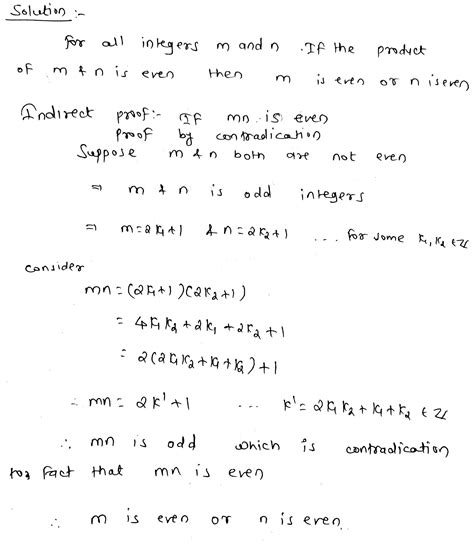 Solution :-
for all integers m and n . If the product
of m & n is even then m is even or n is even
Indirect proof :- If mn is even
proof by contradication
Suppose m & n both are not even
⇒ m & n is odd integers
⇒ m = 2k₁+1 & n = 2k₂+1 ... for some k₁, k₂ ∈ Z
consider
mn = (2k₁+1)(2k₂+1)
= 4k₁k₂ + 2k₁ + 2k₂ + 1
= 2(2k₁k₂ + k₁ + k₂) + 1
∴ mn = 2k' + 1 ... k' = 2k₁k₂ + k₁ + k₂ ∈ Z
∴ mn is odd which is contradication
fact that mn is even
∴ m is even or n is even